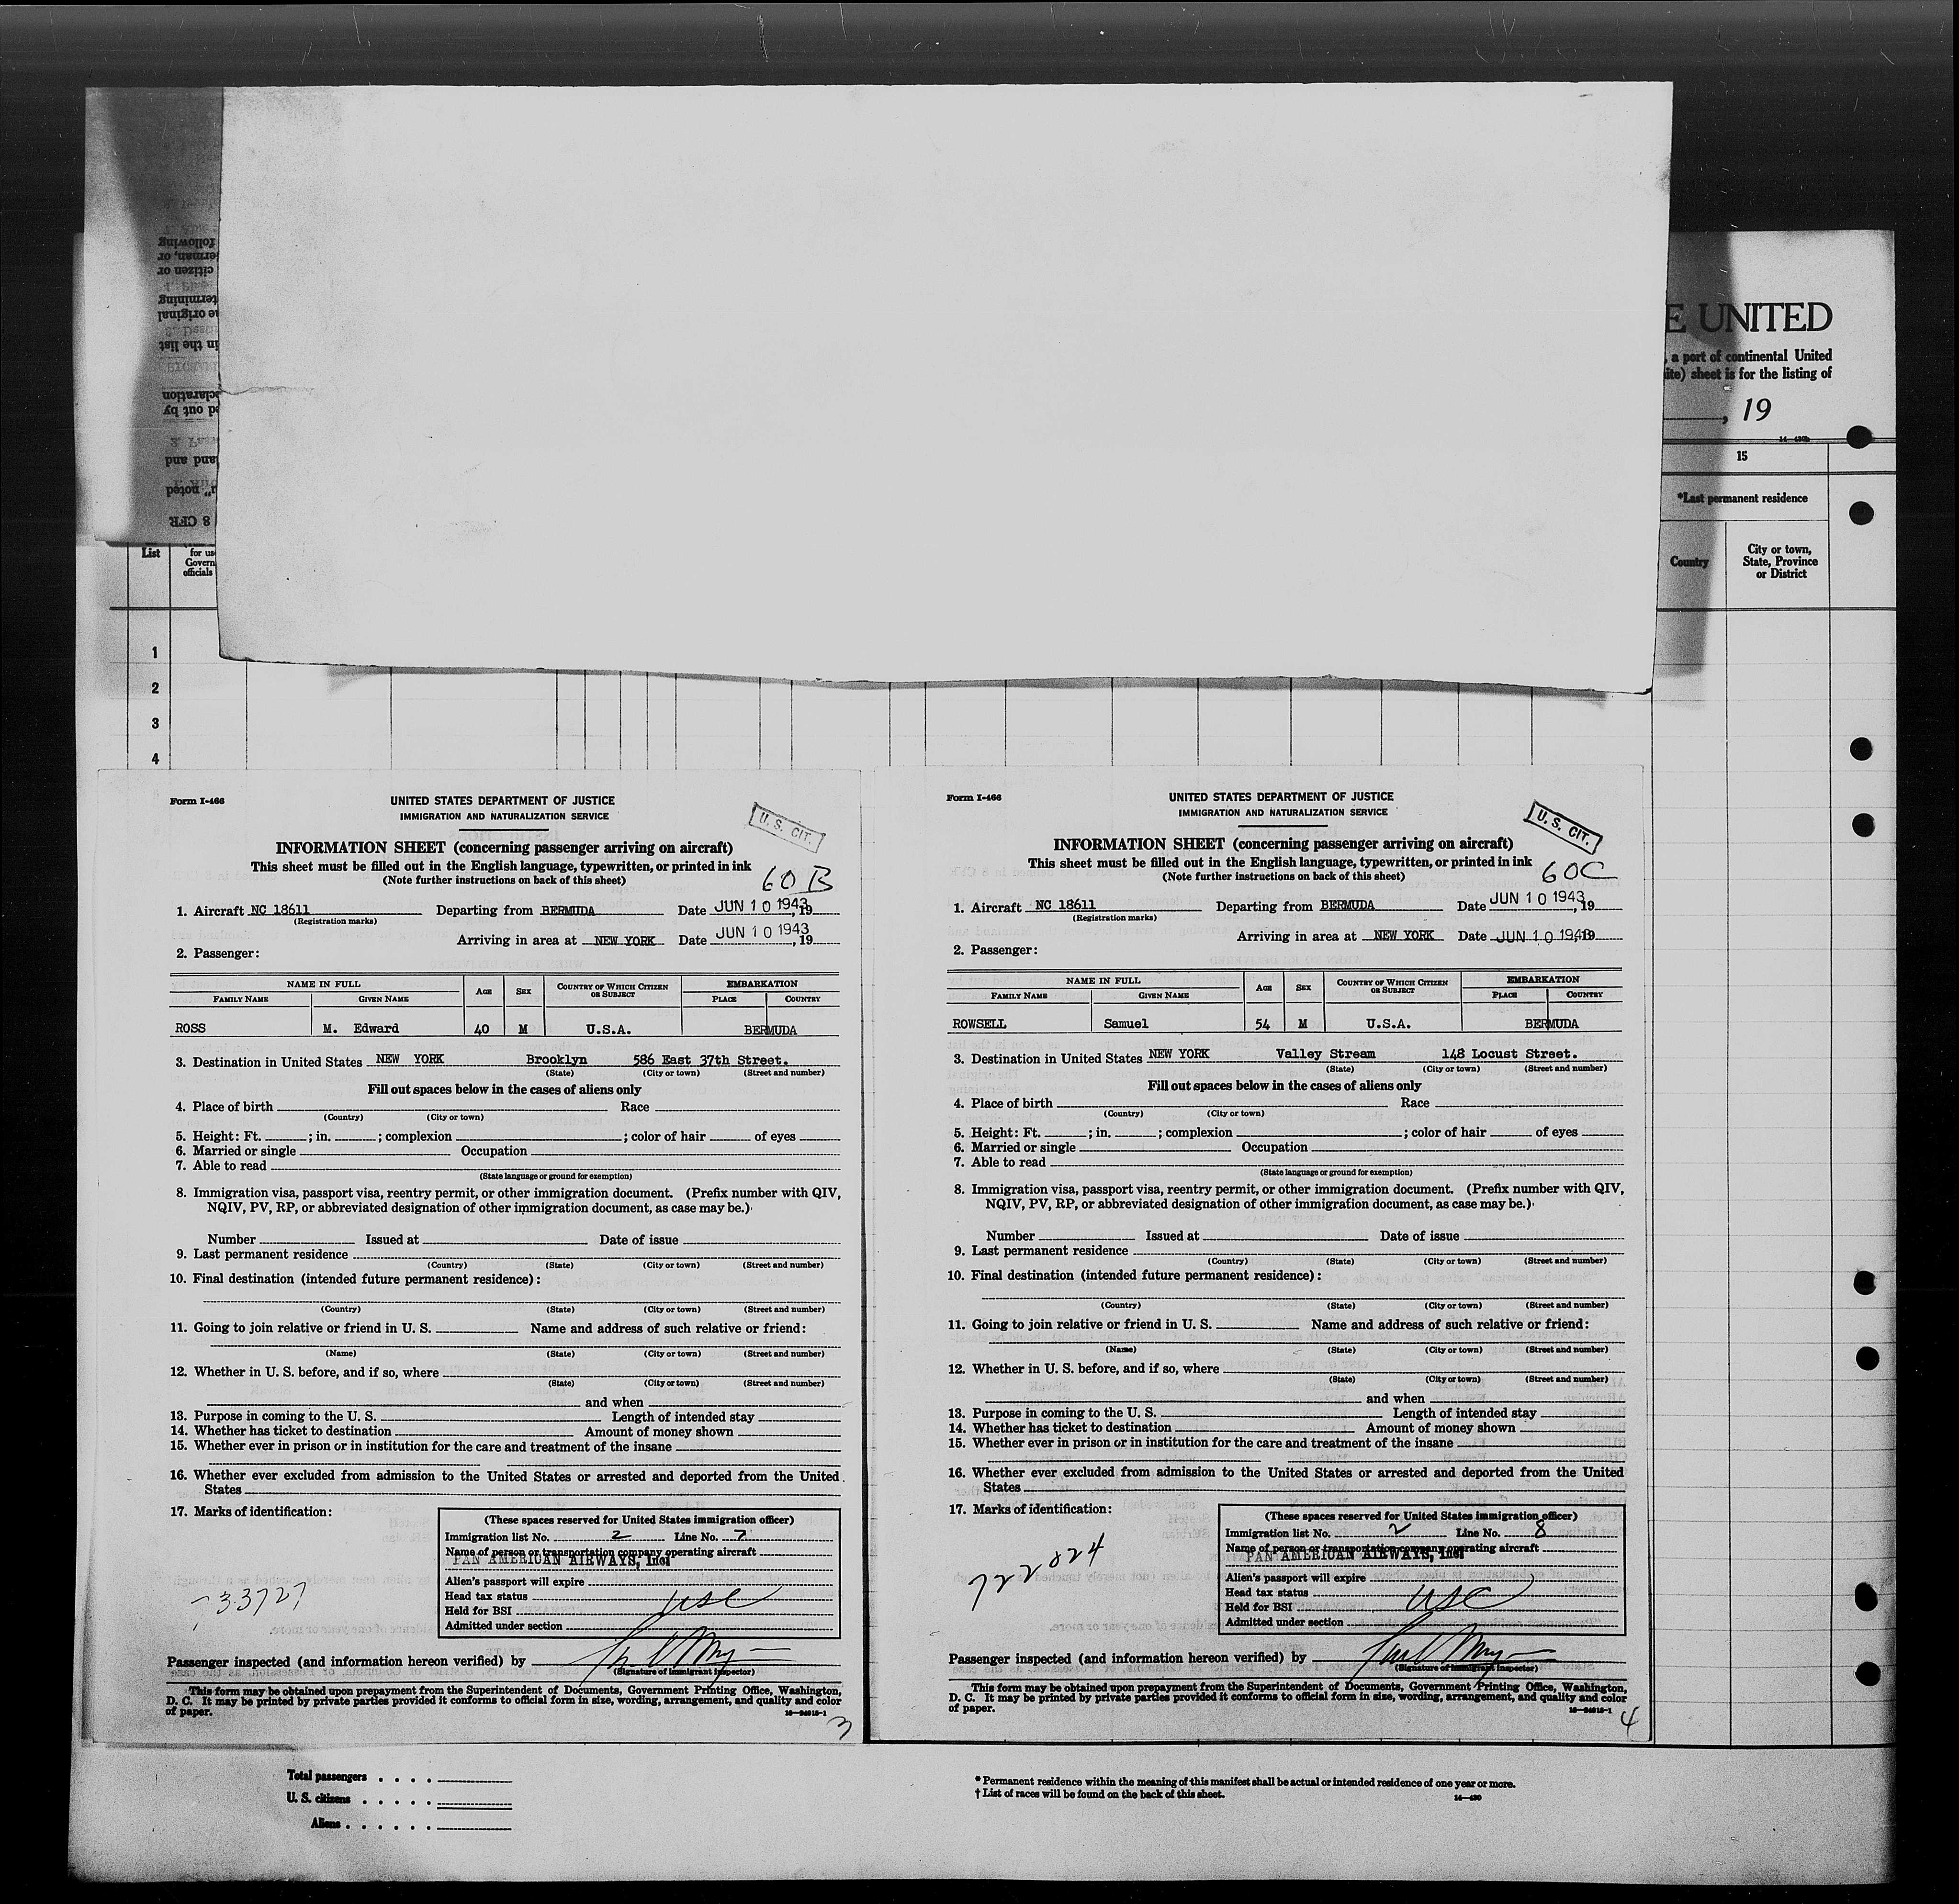 following
erman, or
citizen or
termining
e original
in the list
eclaration
ed out by
and and
n" noted
8 CFR
E UNITED
, a port of continental United
ite) sheet is for the listing of
, 19
14—430b
15
*Last permanent residence
Country
City or town, State, Province or District
List
for us
Govern
officials
1
2
3
4
Form I-466
UNITED STATES DEPARTMENT OF JUSTICE
IMMIGRATION AND NATURALIZATION SERVICE
U. S. CIT.
INFORMATION SHEET (concerning passenger arriving on aircraft)
This sheet must be filled out in the English language, typewritten, or printed in ink
(Note further instructions on back of this sheet)
60 B
1. Aircraft NC 18611 Departing from BERMUDA Date JUN 10 1943, 19
(Registration marks)
Arriving in area at NEW YORK Date JUN 10 1943, 19
2. Passenger:
NAME IN FULL AGE SEX COUNTRY OF WHICH CITIZEN OR SUBJECT EMBARKATION
FAMILY NAME GIVEN NAME PLACE COUNTRY
ROSS M. Edward 40 M U.S.A. BERMUDA
3. Destination in United States NEW YORK Brooklyn 586 East 37th Street.
(State) (City or town) (Street and number)
Fill out spaces below in the cases of aliens only
4. Place of birth Race
(Country) (City or town)
5. Height: Ft. ; in. ; complexion ; color of hair of eyes
6. Married or single Occupation
7. Able to read
(State language or ground for exemption)
8. Immigration visa, passport visa, reentry permit, or other immigration document. (Prefix number with QIV,
NQIV, PV, RP, or abbreviated designation of other immigration document, as case may be.)
Number Issued at Date of issue
9. Last permanent residence
(Country) (State) (City or town) (Street and number)
10. Final destination (intended future permanent residence):
(Country) (State) (City or town) (Street and number)
11. Going to join relative or friend in U. S. Name and address of such relative or friend:
(Name) (State) (City or town) (Street and number)
12. Whether in U. S. before, and if so, where
(State) (City or town) (Street and number)
and when
13. Purpose in coming to the U. S. Length of intended stay
14. Whether has ticket to destination Amount of money shown
15. Whether ever in prison or in institution for the care and treatment of the insane
16. Whether ever excluded from admission to the United States or arrested and deported from the United
States
17. Marks of identification:
(These spaces reserved for United States immigration officer)
Immigration list No. 2 Line No. 7
Name of person or transportation company operating aircraft
PAN AMERICAN AIRWAYS, Inc.
Alien's passport will expire
Head tax status usc
Held for BSI
Admitted under section
33727
Passenger inspected (and information hereon verified) by
(Signature of immigrant inspector)
This form may be obtained upon prepayment from the Superintendent of Documents, Government Printing Office, Washington,
D. C. It may be printed by private parties provided it conforms to official form in size, wording, arrangement, and quality and color
of paper.
16—24915-1
3
Form I-466
UNITED STATES DEPARTMENT OF JUSTICE
IMMIGRATION AND NATURALIZATION SERVICE
U. S. CIT.
INFORMATION SHEET (concerning passenger arriving on aircraft)
This sheet must be filled out in the English language, typewritten, or printed in ink
(Note further instructions on back of this sheet)
60C
1. Aircraft NC 18611 Departing from BERMUDA Date JUN 10 1943, 19
(Registration marks)
Arriving in area at NEW YORK Date JUN 10 1943, 19
2. Passenger:
NAME IN FULL AGE SEX COUNTRY OF WHICH CITIZEN OR SUBJECT EMBARKATION
FAMILY NAME GIVEN NAME PLACE COUNTRY
ROWSELL Samuel 54 M U.S.A. BERMUDA
3. Destination in United States NEW YORK Valley Stream 148 Locust Street.
(State) (City or town) (Street and number)
Fill out spaces below in the cases of aliens only
4. Place of birth Race
(Country) (City or town)
5. Height: Ft. ; in. ; complexion ; color of hair of eyes
6. Married or single Occupation
7. Able to read
(State language or ground for exemption)
8. Immigration visa, passport visa, reentry permit, or other immigration document. (Prefix number with QIV,
NQIV, PV, RP, or abbreviated designation of other immigration document, as case may be.)
Number Issued at Date of issue
9. Last permanent residence
(Country) (State) (City or town) (Street and number)
10. Final destination (intended future permanent residence):
(Country) (State) (City or town) (Street and number)
11. Going to join relative or friend in U. S. Name and address of such relative or friend:
(Name) (State) (City or town) (Street and number)
12. Whether in U. S. before, and if so, where
(State) (City or town) (Street and number)
and when
13. Purpose in coming to the U. S. Length of intended stay
14. Whether has ticket to destination Amount of money shown
15. Whether ever in prison or in institution for the care and treatment of the insane
16. Whether ever excluded from admission to the United States or arrested and deported from the United
States
17. Marks of identification:
(These spaces reserved for United States immigration officer)
Immigration list No. 2 Line No. 8
Name of person or transportation company operating aircraft
PAN AMERICAN AIRWAYS, Inc.
Alien's passport will expire
Head tax status usc
Held for BSI
Admitted under section
722824
Passenger inspected (and information hereon verified) by
(Signature of immigrant inspector)
This form may be obtained upon prepayment from the Superintendent of Documents, Government Printing Office, Washington,
D. C. It may be printed by private parties provided it conforms to official form in size, wording, arrangement, and quality and color
of paper.
16—24915-1
4
Total passengers . . . .
U. S. citizens . . . . .
Aliens . . . . . .
* Permanent residence within the meaning of this manifest shall be actual or intended residence of one year or more.
† List of races will be found on the back of this sheet.
14—430